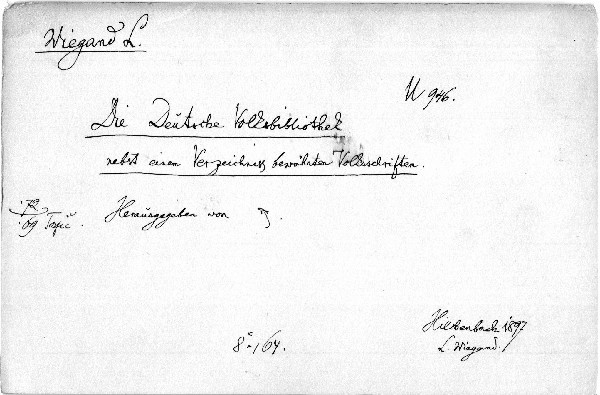 Wiegand L.
U 946.
Die Deutsche Volksbibliothek
nebst einem Verzeichniss bewährten Volksschriften.
Herausgegeben von
69
Hilchenbach 1897
L. Wiegand.
8°. 164.